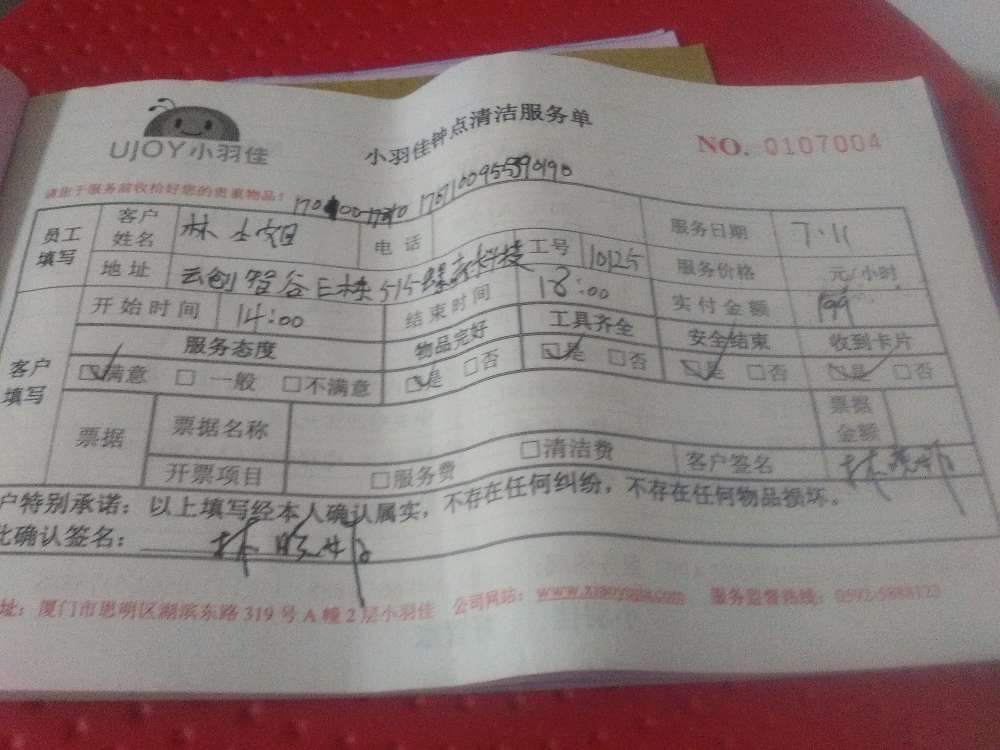 UJOY小羽佳
小羽佳钟点清洁服务单
NO. 0107004
请您于服务前收拾好您的贵重物品！
员工填写 客户姓名 林小姐 电话 服务日期 7.11
地址 云创智谷E栋 515 科技 工号 服务价格 元/小时
客户填写 开始时间 14:00 结束时间 18:00 实付金额 199
服务态度 物品完好 工具齐全 安全结束 收到卡片
☑满意 □一般 □不满意 ☑是 □否 ☑是 □否 ☑是 □否 ☑是 □否
票据 票据名称 票据金额
开票项目 □服务费 □清洁费 客户签名
户特别承诺：以上填写经本人确认属实，不存在任何纠纷，不存在任何物品损坏。
此确认签名：
址：厦门市思明区湖滨东路 319 号 A 幢 2 层小羽佳 公司网站： 服务监督热线：